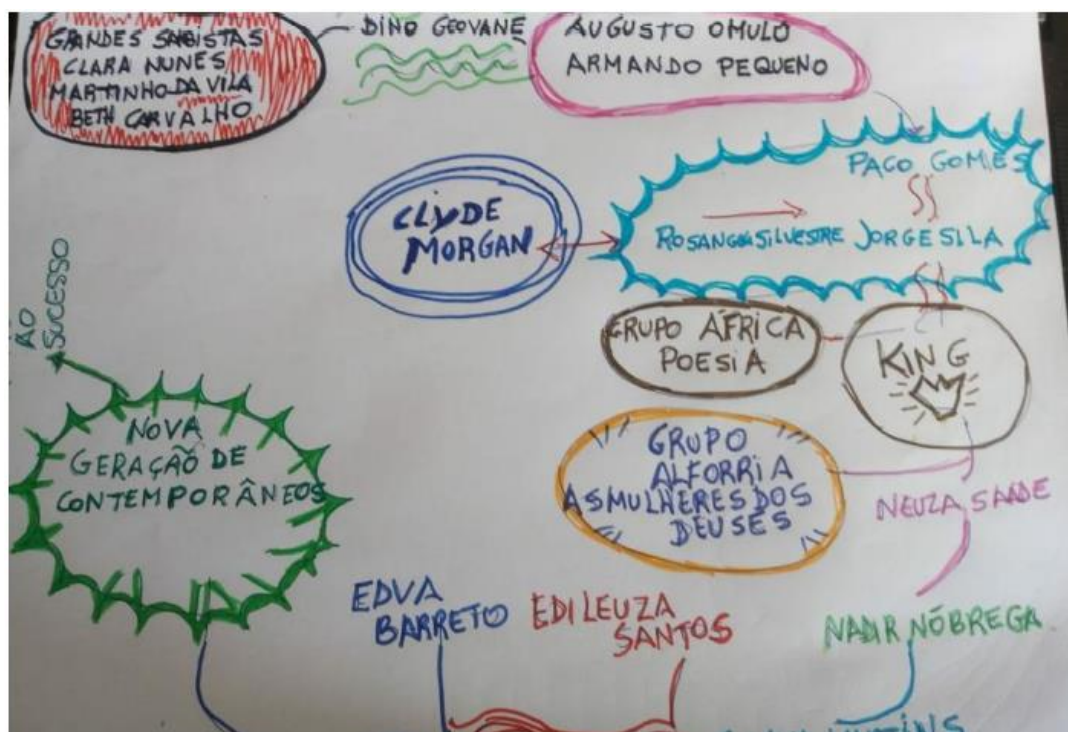 GRANDES SABISTAS
CLARA NUNES
MARTINHO DA VILA
BETH CARVALHO
DINO GEOVANE
AUGUSTO OMULÓ
ARMANDO PEQUENO
PACO GOMES
SILVESTRE JORGE SILA
CLYDE
MORGAN
GRUPO ÁFRICA
POESIA
KING
ÃO
SUCESSO
NOVA
GERAÇÃO DE
CONTEMPORÂNEOS
GRUPO
ALFORRIA
AS MULHERES DOS
DEUSES
NEUZA SAADE
EDVA
BARRETO
EDILEUZA
SANTOS
NADIR NÓBREGA